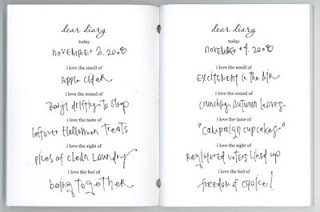 dear diary
today
november 2. 2008
i love the smell of
Apple Cider
i love the sound of
boys drifting to sleep
i love the taste of
leftover Halloween treats
i love the sight of
piles of clean laundry
i love the feel of
being together
dear diary
today
november 4. 2008
i love the smell of
Excitement in the Air
i love the sound of
crunchy autumn leaves
i love the taste of
"campaign cupcakes"
i love the sight of
registered voters lined up
i love the feel of
freedom of choice!